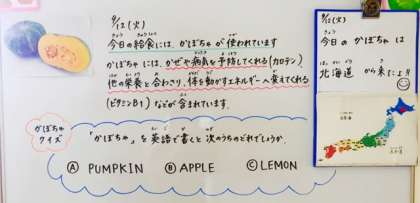 9/12(火)
今日の給食には、かぼちゃが使われています
かぼちゃには、かぜや病気を予防してくれる(カロテン)
他の栄養と合わさり、体を動かすエネルギーへ変えてくれる
(ビタミンB1)などが含まれています。
かぼちゃ
クイズ
「かぼちゃ」を英語で書くと次のうちのどれでしょうか。
Ⓐ PUMPKIN Ⓑ APPLE Ⓒ LEMON
9/12(火)
今日のかぼちゃは
北海道から来たよ!!